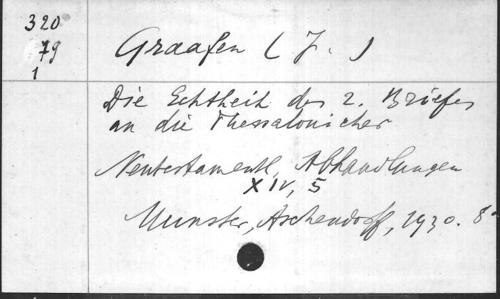 320
79
1
Graafen (J.)
Die Echtheit des 2. Briefes
an die Thessalonicher
Neutestamentl. Abhandlungen
XIV, 5
Munster, Aschendorff, 1930. 8°